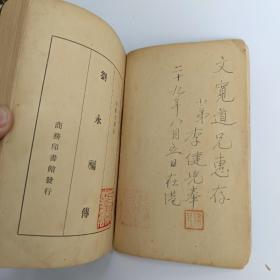 文寬道兄惠存
小弟李健兒奉
二十九年八月五日在港
劉永福傳
商務印書館發行